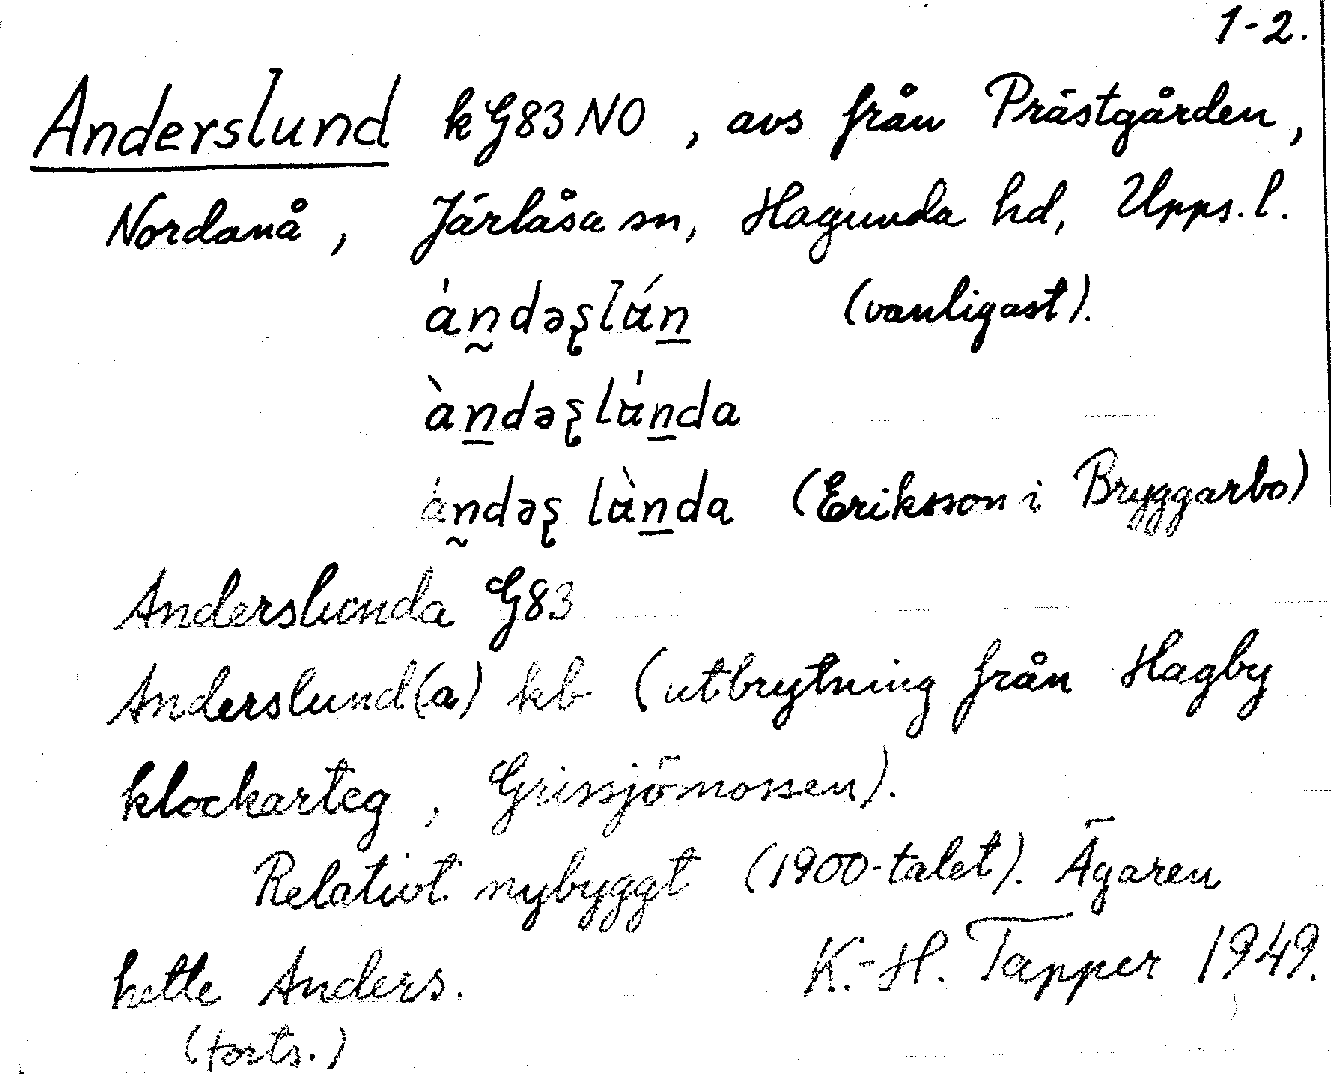 1-2.
Anderslund kG83NO, avs från Prästgården,
Nordanå, Järlåsa sn, Hagunda hd, Upps. l.
án̰dəʂlún̲ (vanligast).
àn̲dəʂlún̲da
án̰dəʂ lùn̲da (Eriksson i Bryggarbo)
Anderslunda G83
Anderslund(a) kb (utbrytning från Hagby
klockarteg, Grissjömossen).
Relativt nybyggt (1900-talet). Ägaren
hette Anders. K.-H. Tapper 1949.
(forts.)